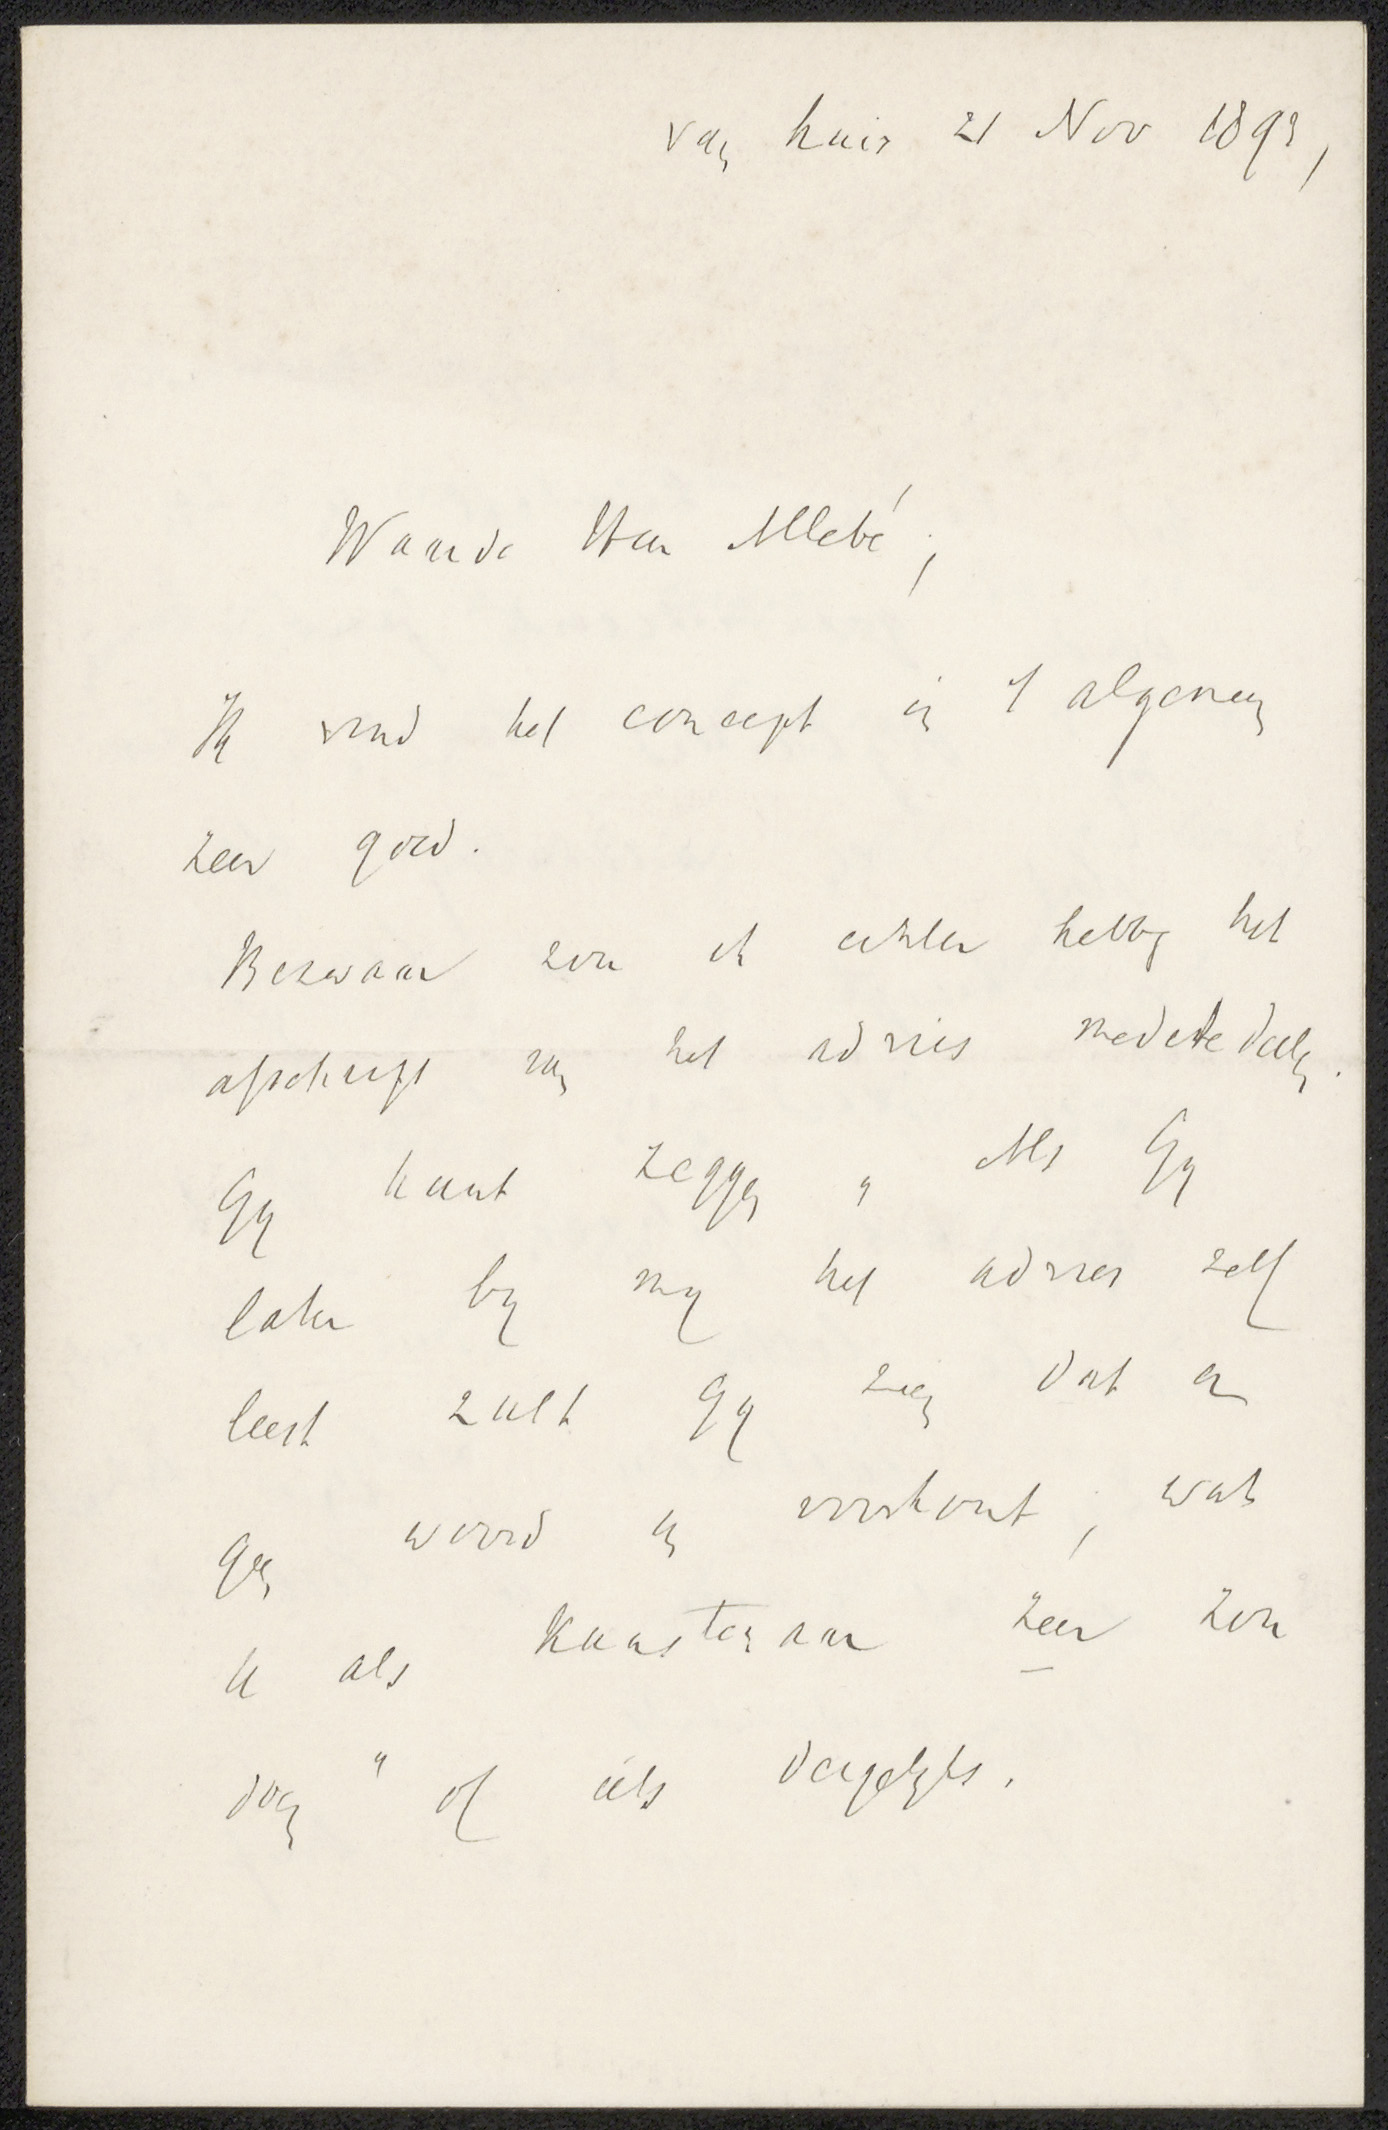 van huis 21 Nov 1893,
Waarde Heer Allebé,
Ik vind het concept in 't algemeen
zeer goed.
Bezwaar zou ik echter hebben het
afschrift van het advies mede te deelen.
Gy kunt zeggen „ Als Gy
later by my het advies zelf
leest zult Gy zien dat er
geen woord in voorkomt, wat
U als Kunstenaar zeer zou
doen " of iets dergelyks.